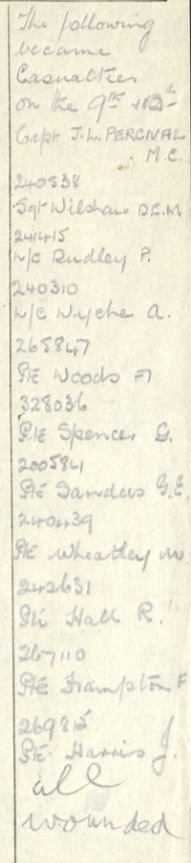 The following
became
Casualties
on the 9th & 10th
Capt J.L. PERCIVAL
M.C.
240538
Sgt Wilshaw D.C.M
241415
L/C Dudley P.
240310
L/C Wyche A.
265847
Pte Woods A
328036
Pte Spencer G.
200584
Pte Sanders G.E.
240439
Pte Wheatley W
242631
Pte Hall R.
267110
Pte Frampton F
269815
Pte Harris J.
all
wounded